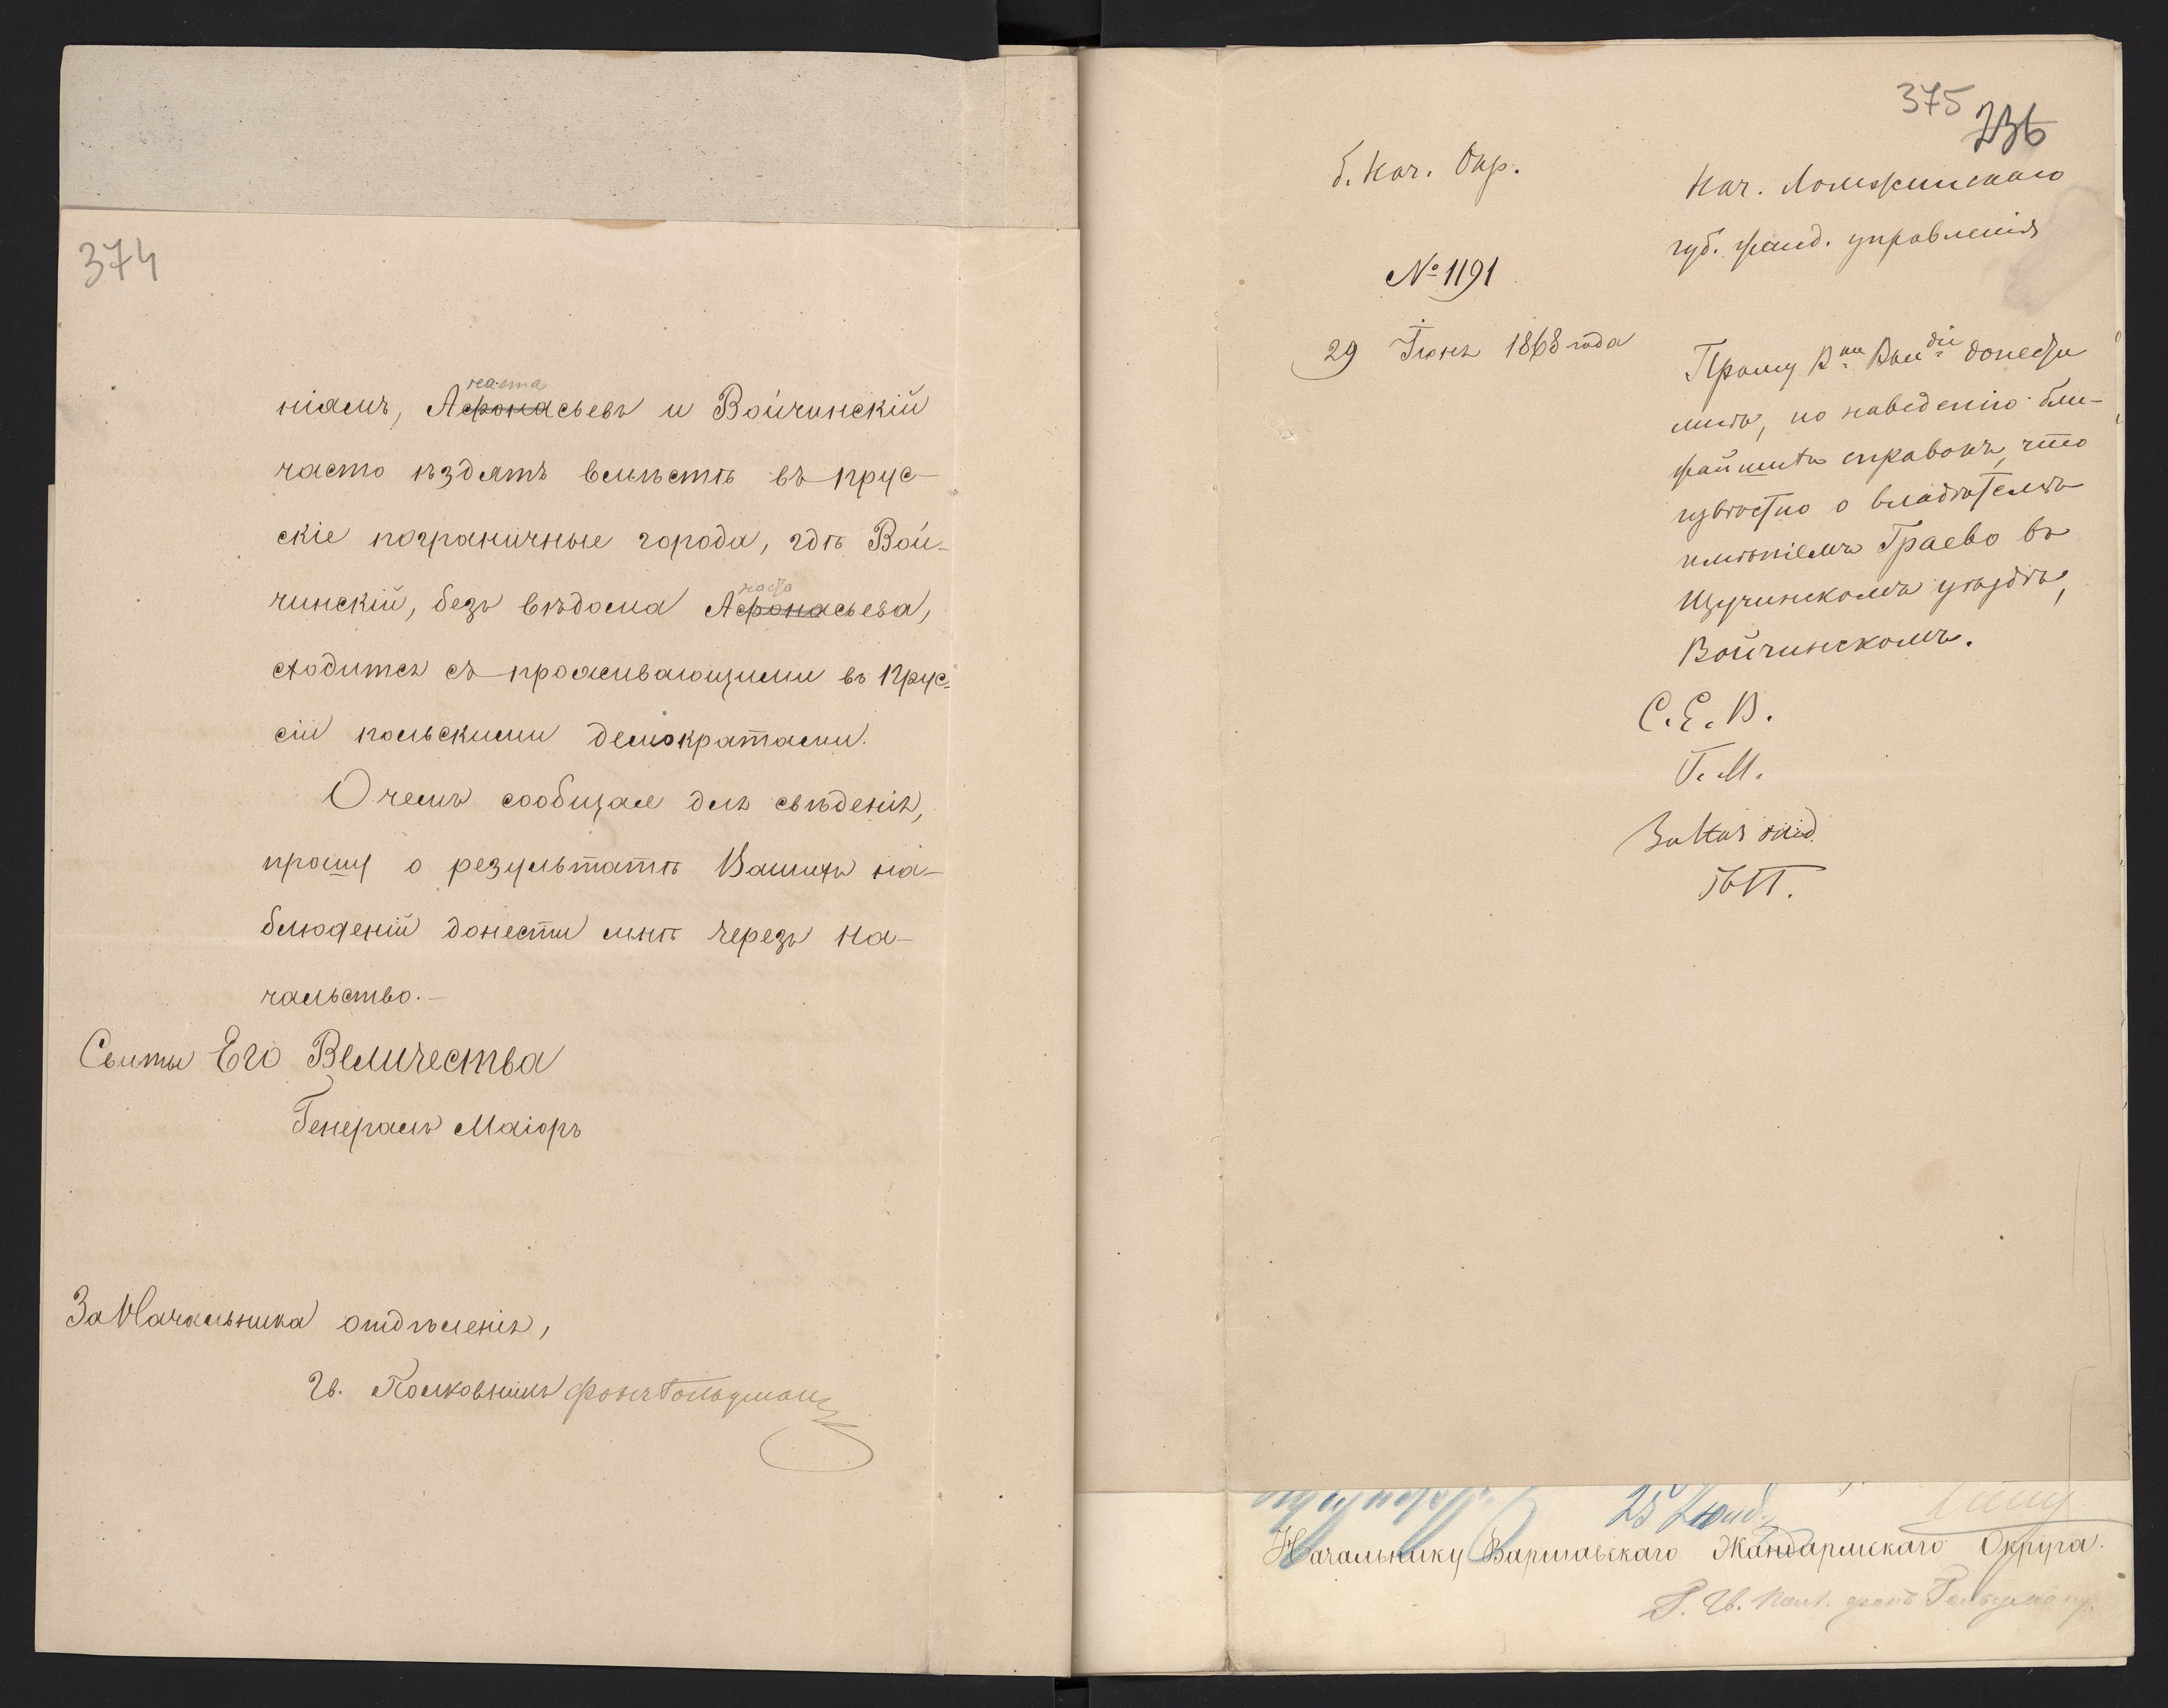 374
ніямъ, Афонасьевъ и Войчинскій
часто ѣздятъ вмѣстѣ въ прус-
скіе пограничные города, гдѣ Вой-
чинскій, безъ вѣдома Афонасьева,
сходится съ проживающими въ Прус-
сіи польскими демократами.
О чемъ сообщая для свѣденія,
прошу о результатѣ Вашихъ на-
блюденій донести мнѣ черезъ на-
чальство.—
Свиты Его Величества
Генералъ Маіоръ
За Начальника отдѣленія,
Гв. Полковникъ фонъ
375
236
Нач. Окр.
№ 1191
29 Іюня 1868 года
Нач. Ломжинскаго
губ. жанд. управленія
Прошу донести
мнѣ, по наведенію бли-
жайшихъ справокъ, что
извѣстно о владѣтелѣ
имѣніемъ Граево въ
Щучинскомъ уѣздѣ,
Войчинскомъ.
С. Е. В.
Г. М.
25
Начальнику Варшавскаго Жандармскаго Округа.